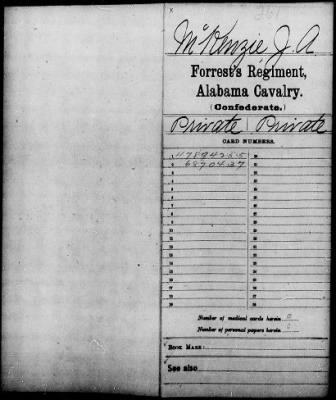 McKenzie J A
Forrest's Regiment,
Alabama Cavalry.
(Confederate.)
Private Private
CARD NUMBERS.
1 20
2 21
3 22
4 23
5 24
6 25
7 26
8 27
9 28
10 29
11 30
12 31
13 32
14 33
15 34
16 35
17 36
18 37
19 38
Number of medical cards herein 0
Number of personal papers herein 0
BOOK MARK:
See also